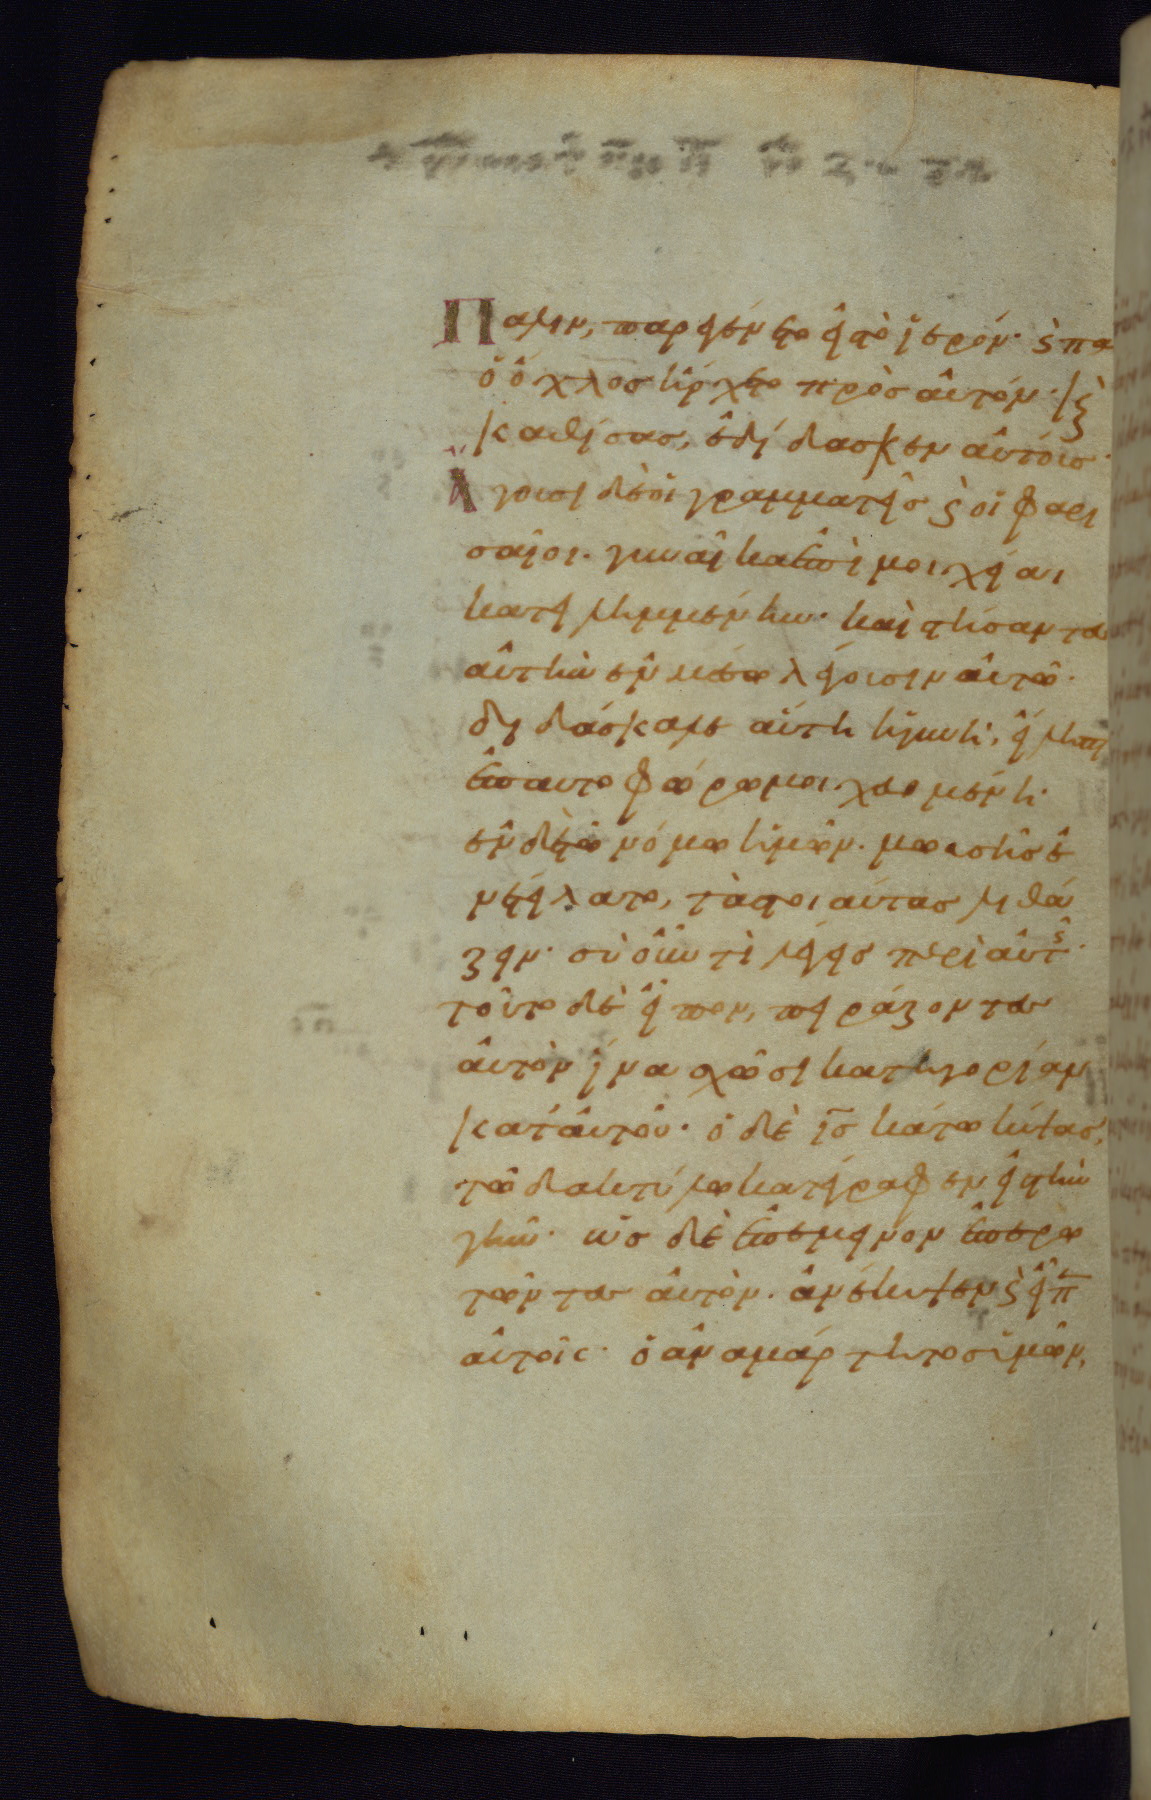 Πάλιν, παρεγένετο εἰς τὸ ἱερόν· ϗ πᾶσ
ὁ ὄχλος ἤρχετο πρὸς αὐτόν· ϗ
καθίσας, ἐδίδασκεν αὐτούς·
Ἄγουσι δὲ οἱ γραμματεῖς ϗ οἱ φαρι
σαῖοι· γυναῖκα ἐπὶ μοιχείαι
κατειλημμένην· καὶ στήσαντες
αὐτὴν ἐν μέσω λέγουσιν αὐτῶ·
διδάσκαλε αὕτη ἡ γυνὴ, εἴληπται
ἐπαυτοφώρω μοιχευομένη·
ἐν δὲ τῶ νόμω ἡμῶν· μωυσῆς ἐ
νετείλατο, τὰς τοιαύτας λιθά
ζειν· σὺ οὖν τὶ λέγεις περὶ αὐτῆς·
τοῦτο δὲ εἶπον, πειράζοντες
αὐτὸν ἵνα σχῶσι κατηγορίαν
κατ' αὐτοῦ· ὁ δὲ ι̅ς̅ κάτω κύψας,
τῶ δακτύλω κατέγραφεν εἰς τὴν
γῆν· ὡς δὲ ἐπέμενον ἐπερω
τῶντες αὐτὸν· ἀνέκυψεν ϗ εἶπ
αὐτοῖς· ὁ ἀναμάρτητος ὑμῶν,